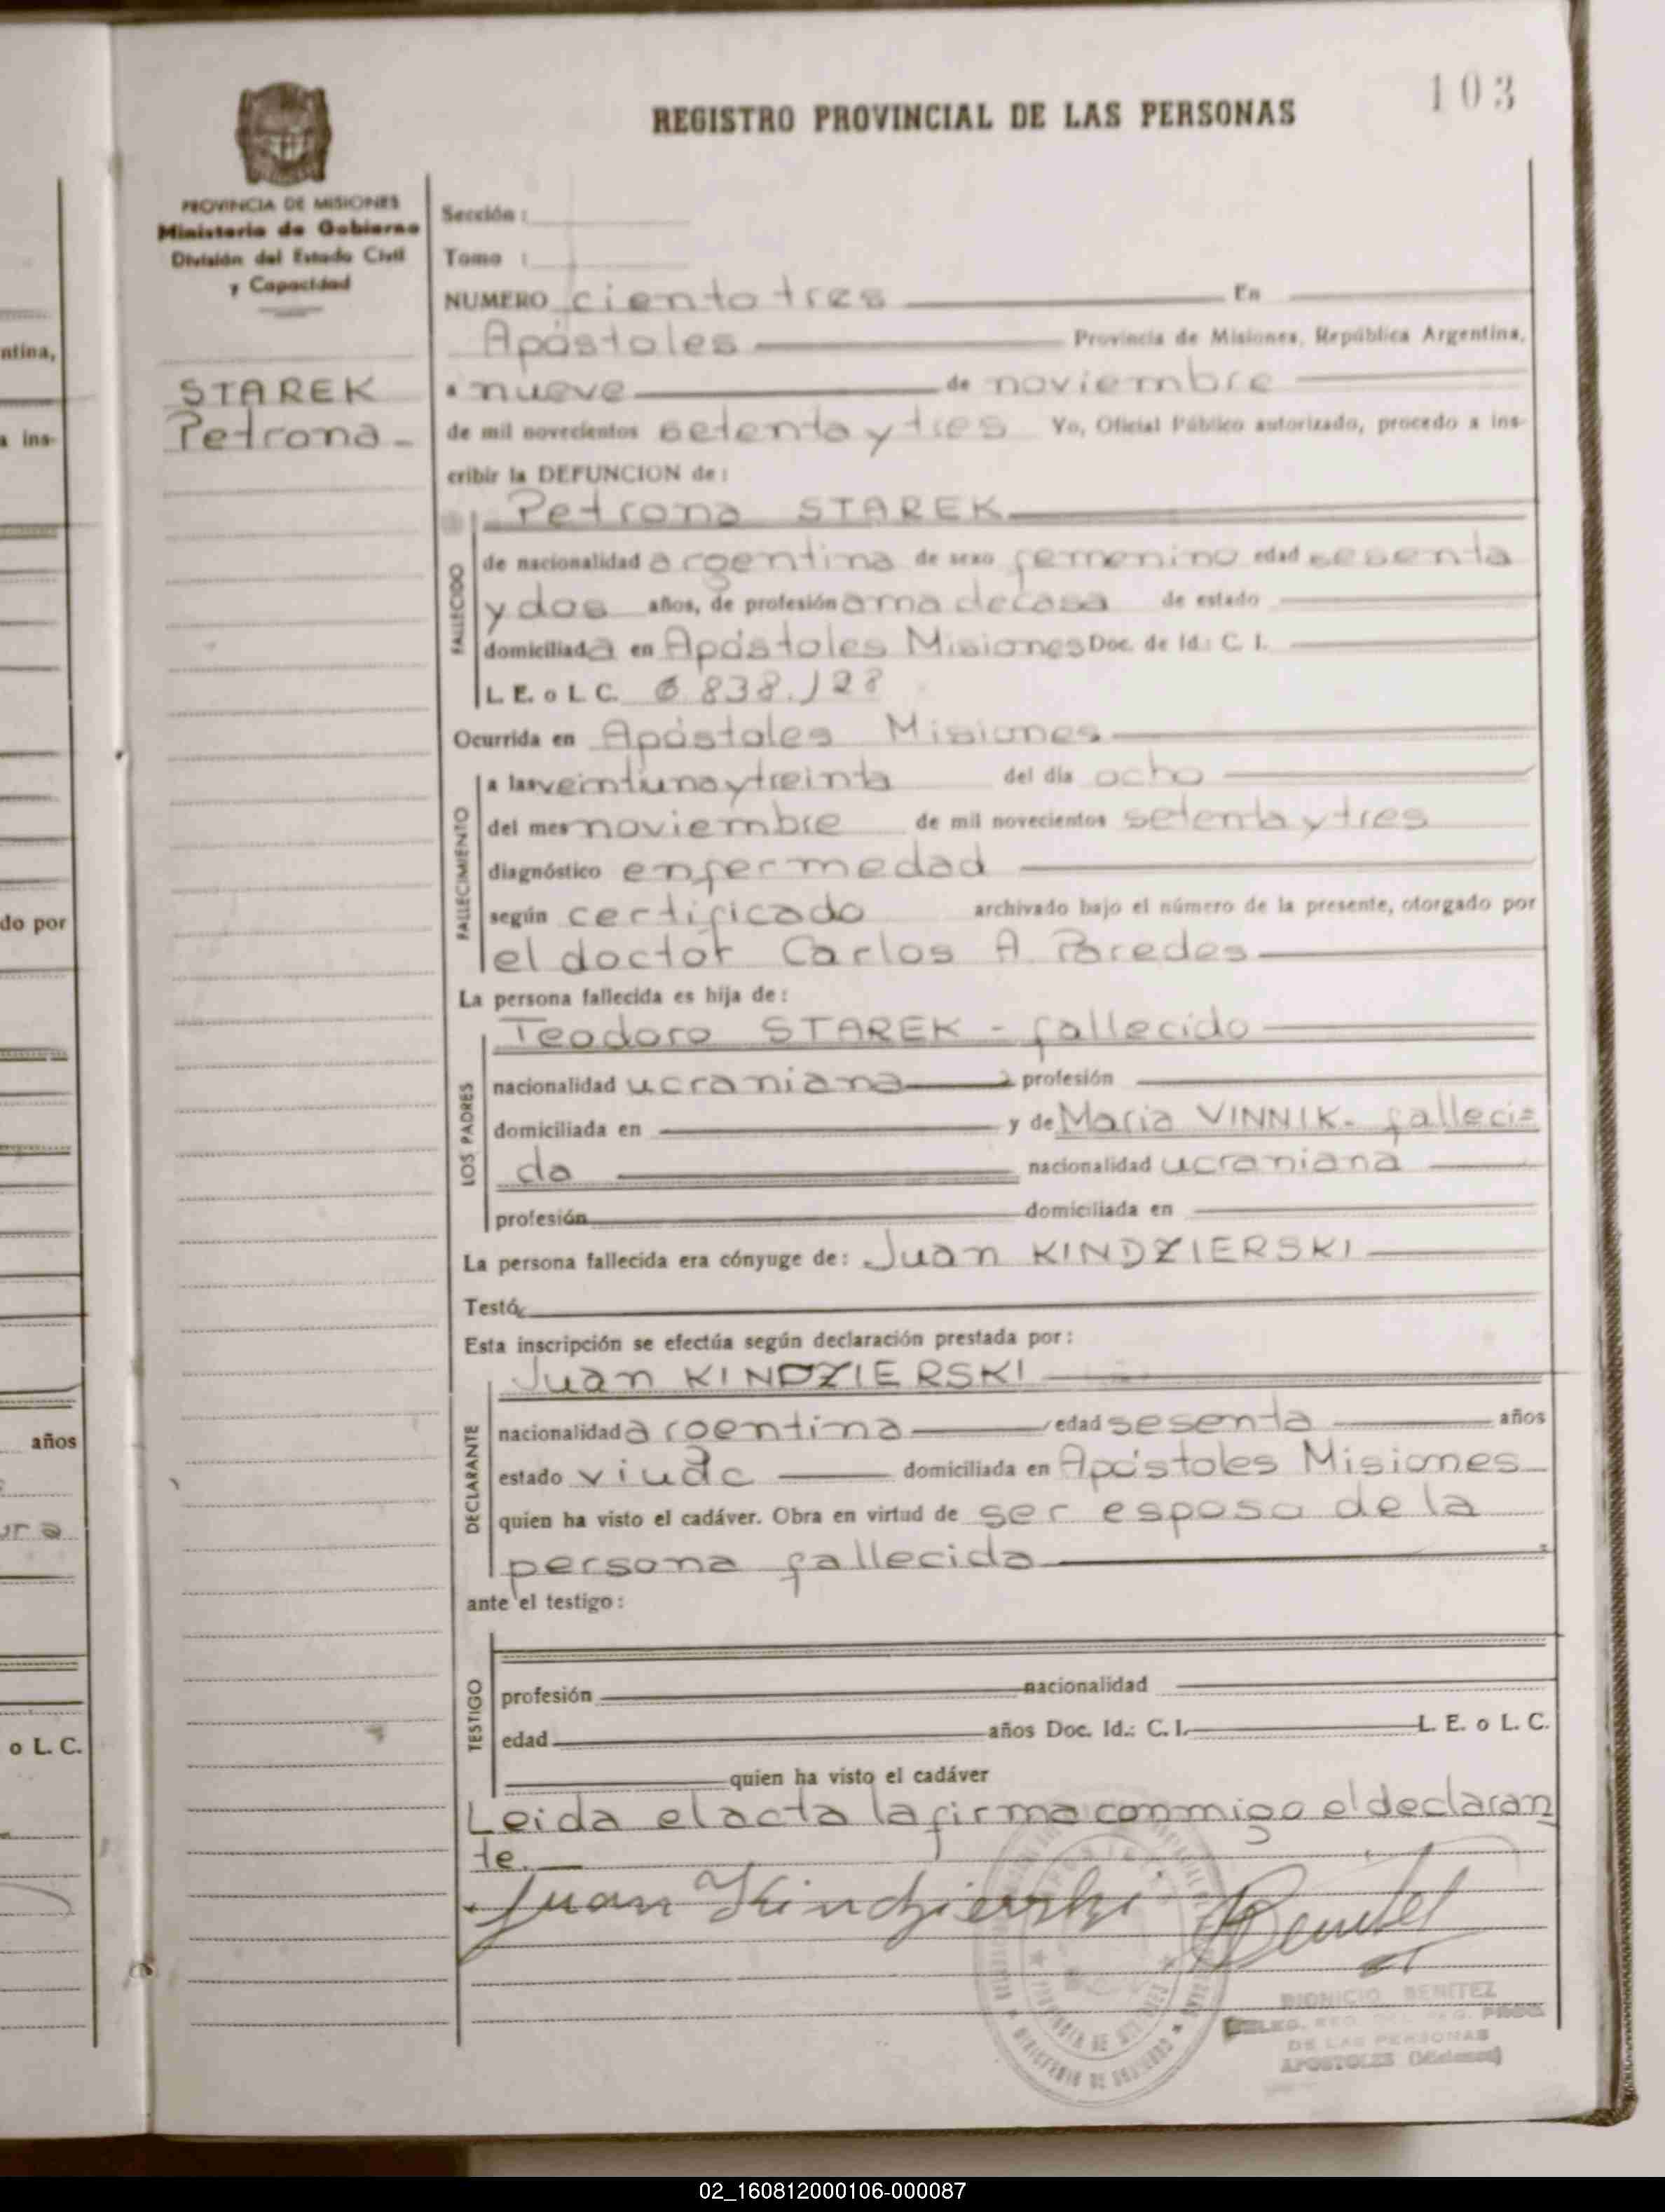 103
REGISTRO PROVINCIAL DE LAS PERSONAS
PROVINCIA DE MISIONES
Ministerio de Gobierno
División del Estado Civil
y Capacidad
STAREK
Petrona -
Sección :
Tomo :
NUMERO ciento tres En
Apóstoles Provincia de Misiones, República Argentina,
a nueve de noviembre
de mil novecientos setenta y tres Yo, Oficial Público autorizado, procedo a ins-
cribir la DEFUNCION de :
Petrona STAREK
FALLECIDO
de nacionalidad argentina de sexo femenino edad sesenta
y dos años, de profesión ama de casa de estado
domiciliada en Apóstoles Misiones Doc. de Id.: C. I.
L. E. o L. C. 6.838.128
Ocurrida en Apóstoles Misiones
FALLECIMIENTO
a las veintiuna y treinta del día ocho
del mes noviembre de mil novecientos setenta y tres
diagnóstico enfermedad
según certificado archivado bajo el número de la presente, otorgado por
el doctor Carlos A. Paredes
La persona fallecida es hija de :
LOS PADRES
Teodoro STAREK - fallecido
nacionalidad ucraniana profesión
domiciliada en y de Maria VINNIK - falleci=
da nacionalidad ucraniana
profesión domiciliada en
La persona fallecida era cónyuge de : Juan KINDZIERSKI
Testó
Esta inscripción se efectúa según declaración prestada por :
DECLARANTE
Juan KINDZIERSKI
nacionalidad argentina edad sesenta años
estado viudo domiciliada en Apóstoles Misiones
quien ha visto el cadáver. Obra en virtud de ser esposo de la
persona fallecida
ante el testigo :
TESTIGO
profesión nacionalidad
edad años Doc. Id.: C. I. L. E. o L. C.
quien ha visto el cadáver
Leida el acta la firma conmigo el declaran
te.
Juan Kindzierski Benitez
DIONICIO BENITEZ
DE LAS PERSONAS
APOSTOLES (Misiones)
PROVINCIA DE MISIONES
MINISTERIO DE GOBIERNO
ntina,
a ins-
do por
años
o L. C.
02_160812000106-000087